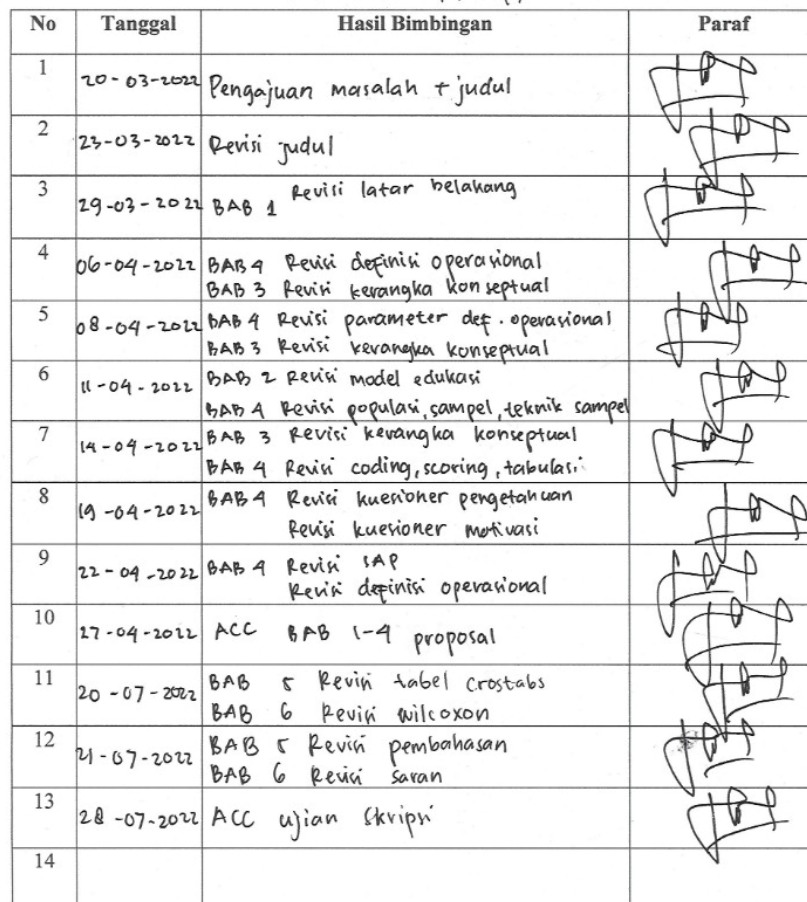 No Tanggal Hasil Bimbingan Paraf
1 20-03-2022 Pengajuan masalah + judul
2 23-03-2022 Revisi judul
3 29-03-2022 BAB 1 Revisi latar belakang
4 06-04-2022 BAB 4 Revisi definisi operasional
BAB 3 Revisi kerangka konseptual
5 08-04-2022 BAB 4 Revisi parameter def. operasional
BAB 3 Revisi kerangka konseptual
6 11-04-2022 BAB 2 Revisi model edukasi
BAB 4 Revisi populasi, sampel, teknik sampel
7 14-04-2022 BAB 3 Revisi kerangka konseptual
BAB 4 Revisi coding, scoring, tabulasi
8 19-04-2022 BAB 4 Revisi kuesioner pengetahuan
Revisi kuesioner motivasi
9 22-04-2022 BAB 4 Revisi SAP
Revisi definisi operasional
10 27-04-2022 ACC BAB 1-4 proposal
11 20-07-2022 BAB 5 Revisi tabel crostabs
BAB 6 Revisi wilcoxon
12 21-07-2022 BAB 5 Revisi pembahasan
BAB 6 Revisi saran
13 28-07-2022 ACC ujian skripsi
14